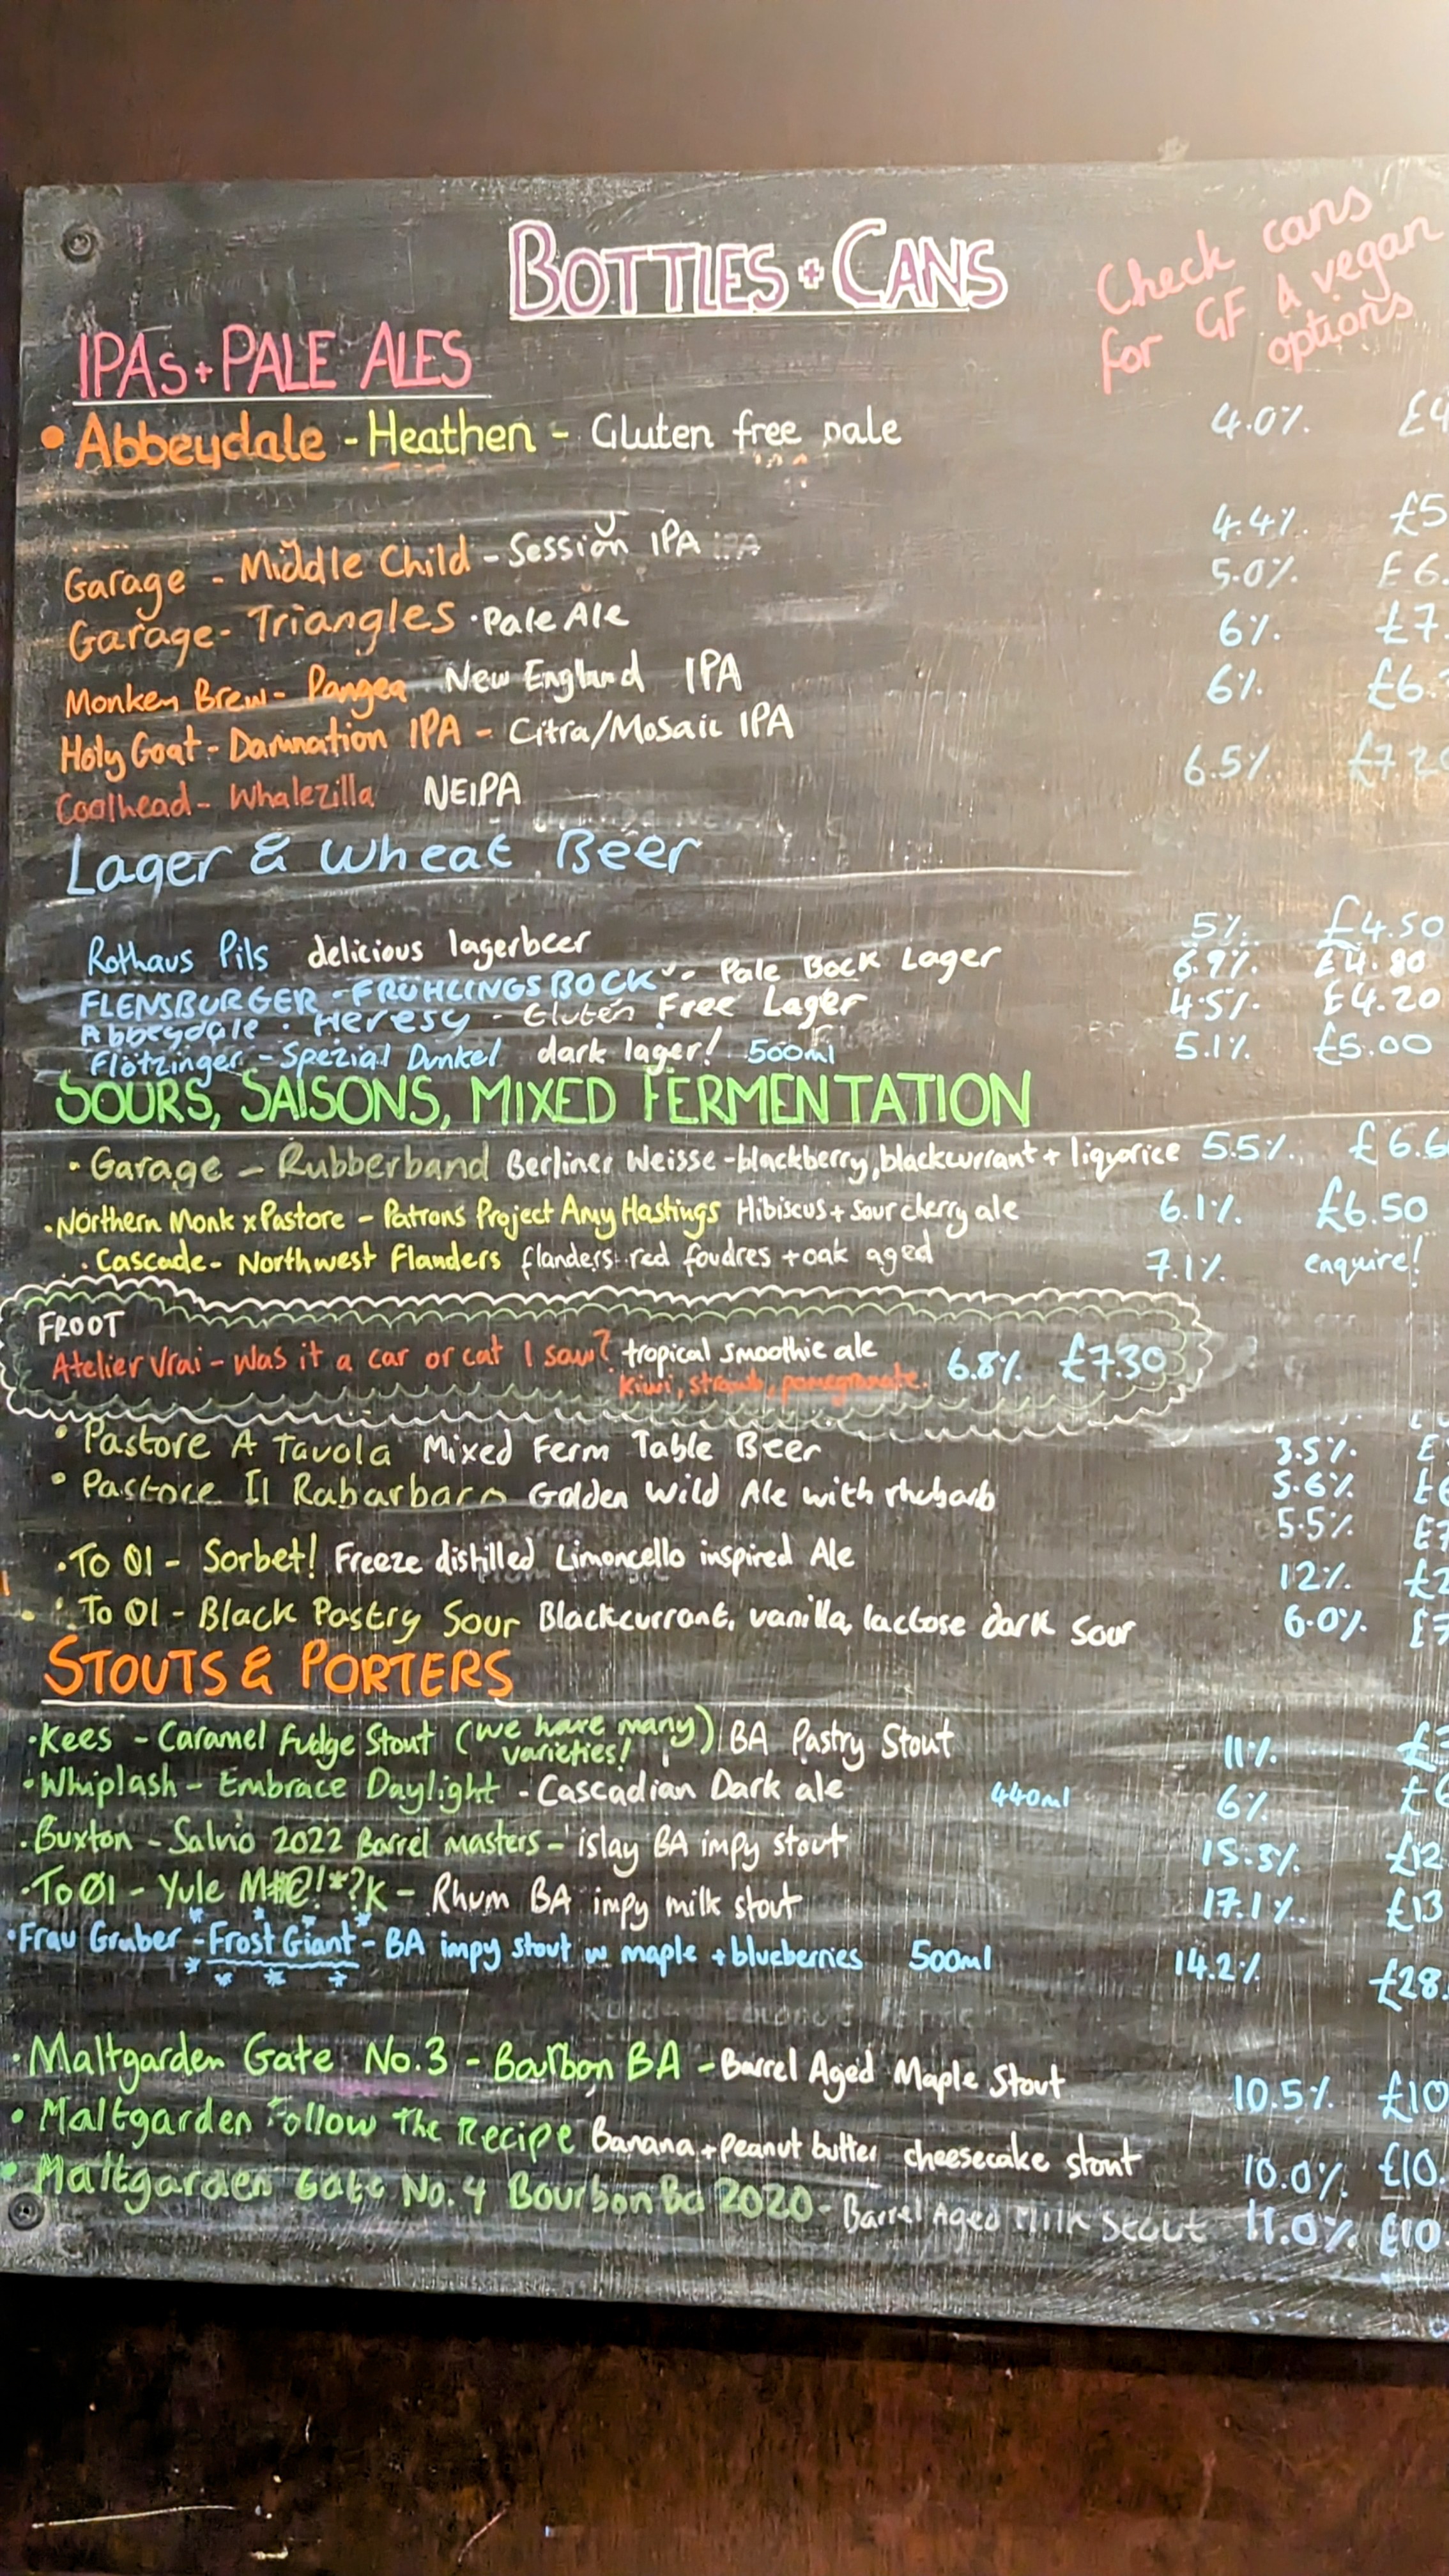 BOTTLES + CANS
Check cans
for GF & vegan
options
IPAs + PALE ALES
• Abbeydale - Heathen - Gluten free pale 4.0% £4
Garage - Middle Child - Session IPA 4.4% £5
Garage - Triangles · Pale Ale 5.0% £6.
Monkey Brew - Pangea New England IPA 6% £7.
Holy Goat - Damnation IPA - Citra/Mosaic IPA 6% £6.
Coolhead - Whalezilla NEIPA 6.5% £7.20
Lager & Wheat Beer
Rothaus Pils delicious lagerbeer 5% £4.50
FLENSBURGER - FRÜHLINGSBOCK - Pale Bock Lager 6.9% £4.80
Abbeydale · Heresy - Gluten Free Lager 4.5% £4.20
Flötzinger - Spezial Dunkel dark lager! 500ml 5.1% £5.00
SOURS, SAISONS, MIXED FERMENTATION
• Garage - Rubberband Berliner Weisse - blackberry, blackcurrant + liquorice 5.5% £6.6
• Northern Monk x Pastore - Patrons Project Amy Hastings Hibiscus + Sour cherry ale 6.1% £6.50
• Cascade - Northwest Flanders flanders red foudres + oak aged 7.1% enquire!
FROOT
Atelier Vrai - Was it a car or cat I saw? tropical smoothie ale 6.8% £7.30
Kiwi, strawb, pomegranate.
• Pastore A Tavola Mixed Ferm Table Beer 3.5% £
• Pastore Il Rabarbaro Golden Wild Ale with rhubarb 5.6% £6
5.5% £7
• To Øl - Sorbet! Freeze distilled Limoncello inspired Ale 12% £
• To Øl - Black Pastry Sour Blackcurrant, vanilla, lactose dark sour 6.0% £7
STOUTS & PORTERS
• Kees - Caramel Fudge Stout (we have many varieties!) BA Pastry Stout 11% £
• Whiplash - Embrace Daylight - Cascadian Dark ale 440ml 6% £6
• Buxton - Salvio 2022 Barrel masters - islay BA impy stout 15.5% £12
• To Øl - Yule M#@!*?K - Rhum BA impy milk stout 17.1% £13
• Frau Gruber - Frost Giant - BA impy stout w maple + blueberries 500ml 14.2% £28.
• Maltgarden Gate No.3 - Bourbon BA - Barrel Aged Maple Stout 10.5% £10
• Maltgarden Follow The Recipe Banana + peanut butter cheesecake stout 10.0% £10.
• Maltgarden Gate No.4 Bourbon Ba 2020 - Barrel Aged Milk Stout 11.0% £10.